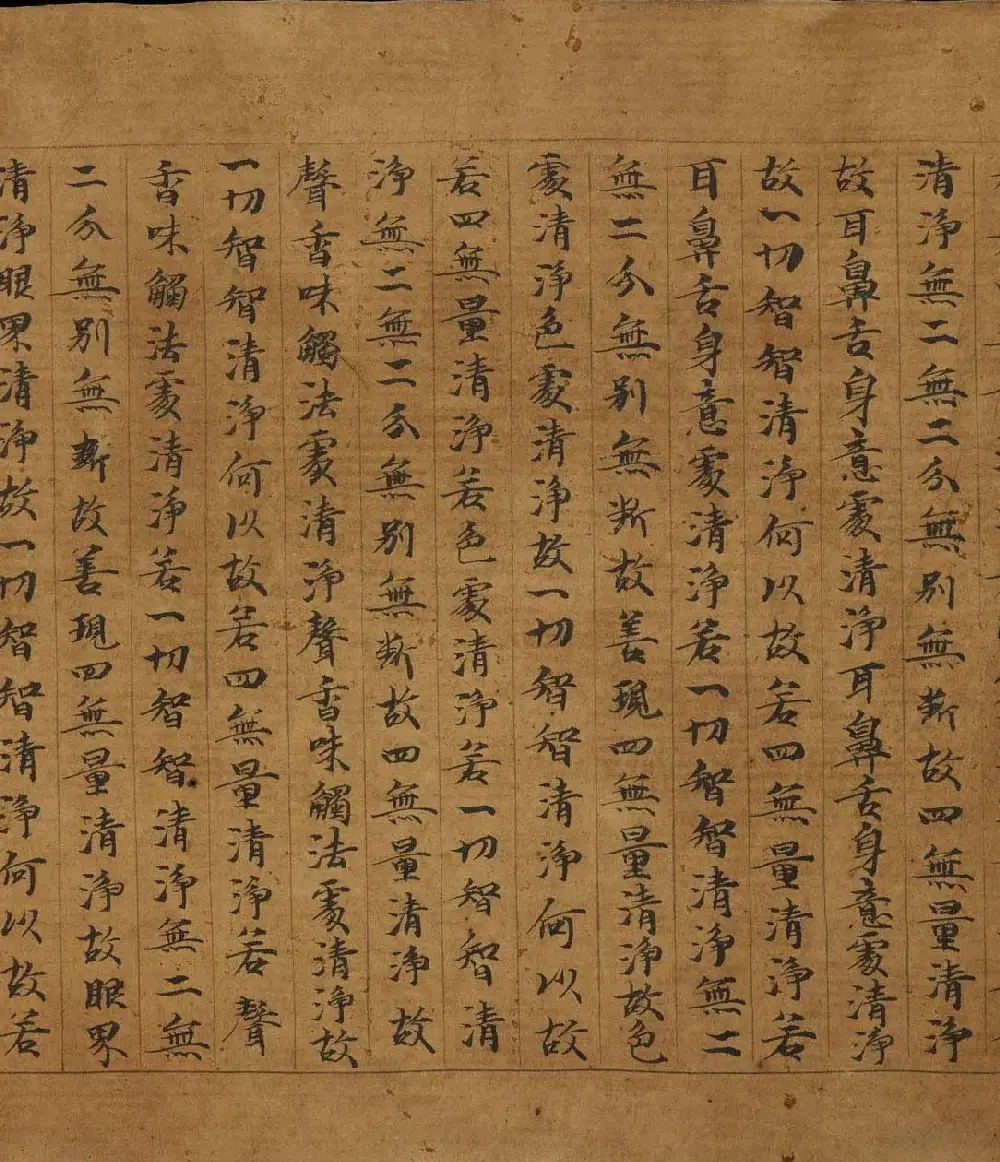 清淨無二無二分無別無斷故四無量清淨
故耳鼻舌身意處清淨耳鼻舌身意處清淨
故一切智智清淨何以故若四無量清淨若
耳鼻舌身意處清淨若一切智智清淨無二
無二分無別無斷故善現四無量清淨故色
處清淨色處清淨故一切智智清淨何以故
若四無量清淨若色處清淨若一切智智清
淨無二無二分無別無斷故四無量清淨故
聲香味觸法處清淨聲香味觸法處清淨故
一切智智清淨何以故若四無量清淨若聲
香味觸法處清淨若一切智智清淨無二無
二分無別無斷故善現四無量清淨故眼界
清淨眼界清淨故一切智智清淨何以故若